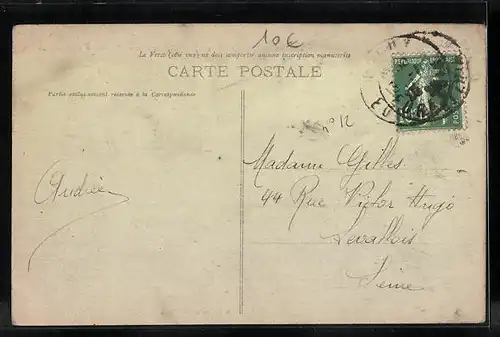 10€
Le Verso (côté vue) ne doit comporter aucune inscription manuscrite
CARTE POSTALE
Partie exclusivement réservée à la Correspondance
n° 12
Andrée
Madame Gilles
44 Rue Victor Hugo
Levallois
Seine
RÉPUBLIQUE
POSTES